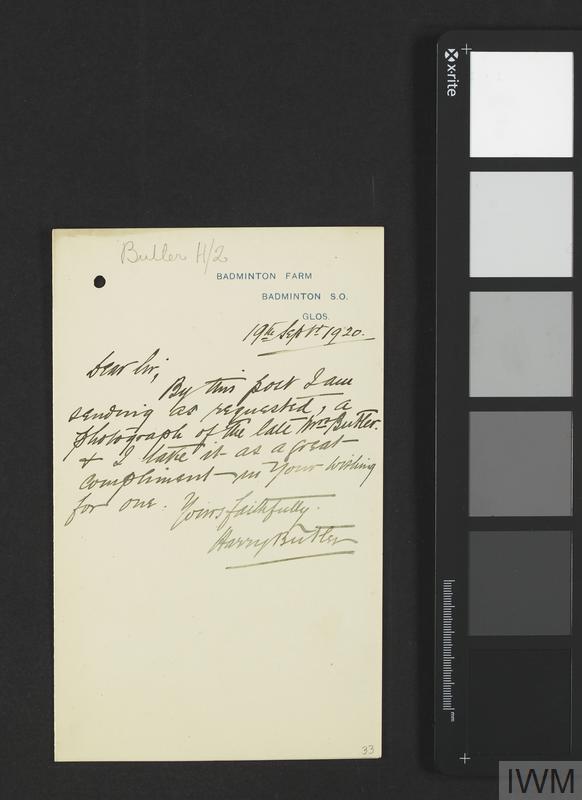 Butler H/2
BADMINTON FARM
BADMINTON S.O.
GLOS.
19th Septr 1920.
Dear Sir,
By this post I am
sending as requested, a
photograph of the late Mrs Butler.
& I take it as a great
compliment in your wishing
for one. Yours faithfully.
Harry Butler
33
x-rite
mm
IWM